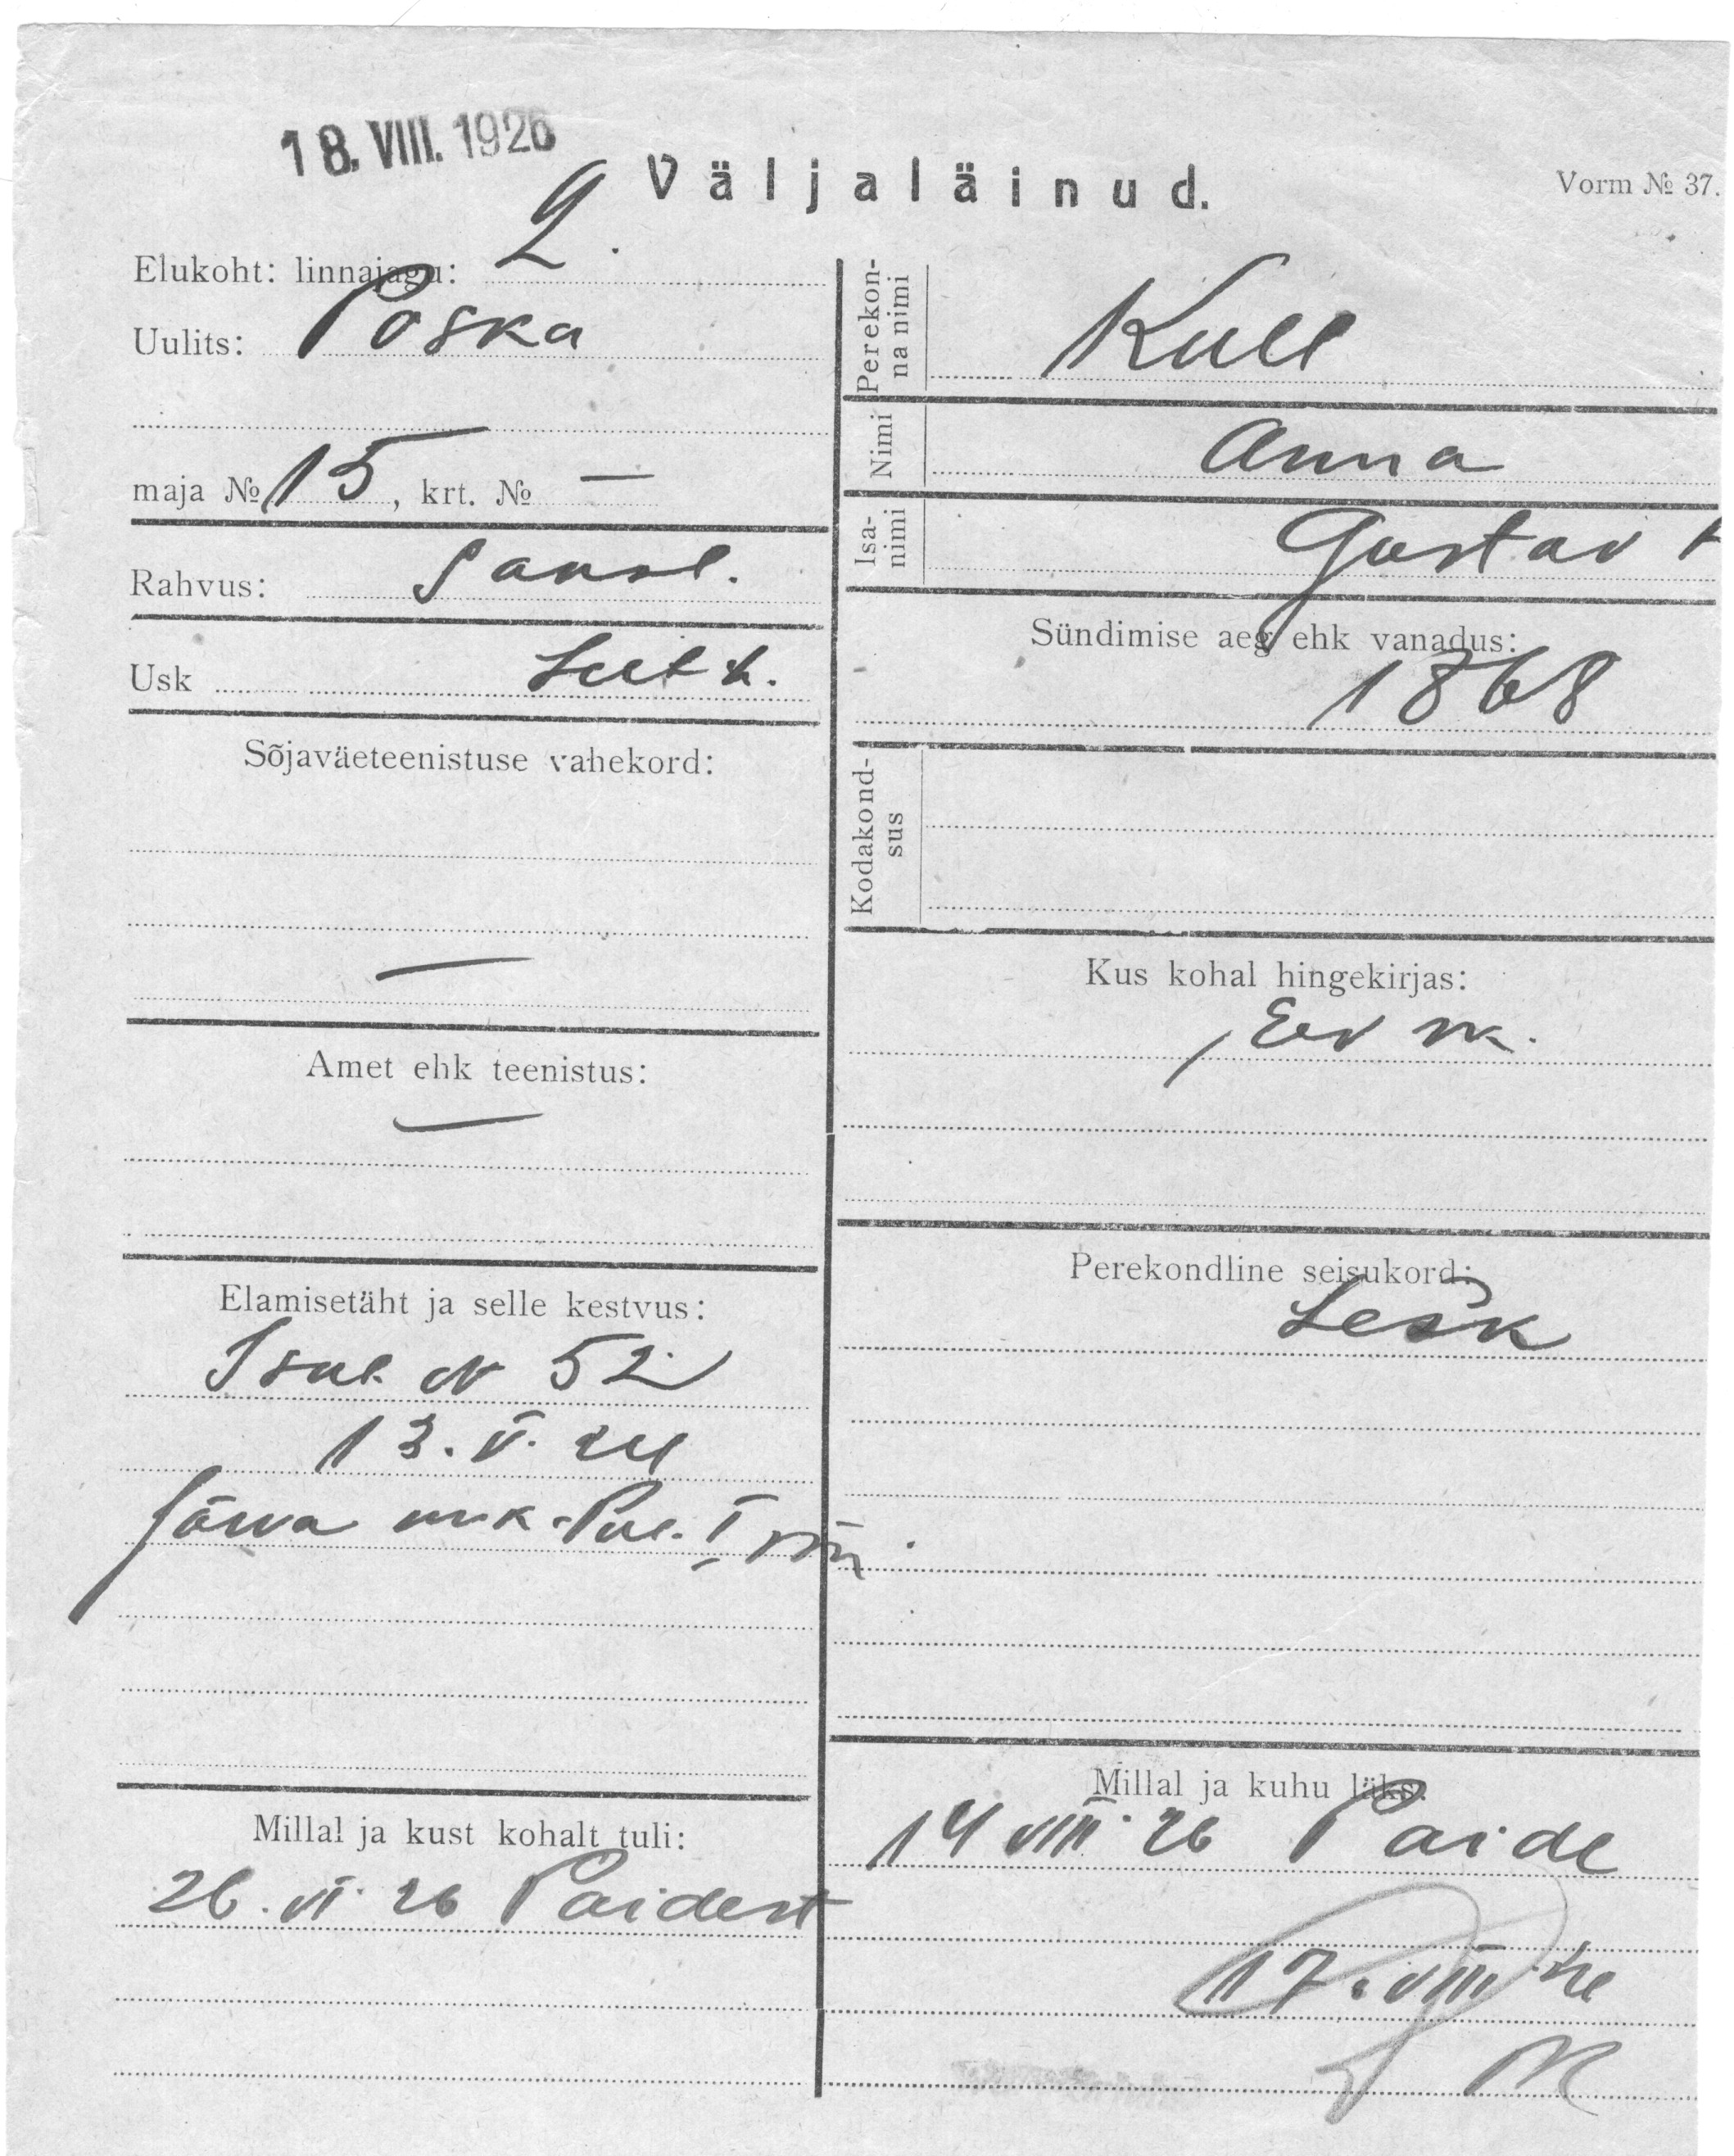 18. VIII. 1926
Väljaläinud.
Vorm № 37.
Elukoht: linnajagu: 2.
Uulits: Poska
maja № 15, krt. № —
Rahvus: Saksl.
Usk Luth.
Sõjaväeteenistuse vahekord:
—
Amet ehk teenistus:
—
Elamisetäht ja selle kestvus:
Isik. N 52
13. V. 24
Järva mk. Pol. I
Millal ja kust kohalt tuli:
26. VI. 26 Paidest
Perekonna nimi
Kull
Nimi
Anna
Isanimi
Gustav t
Sündimise aeg ehk vanadus:
1868
Kodakondsus
Kus kohal hingekirjas:
Perekondline seisukord:
Lesk
Millal ja kuhu läks.
14 VIII. 26 Paide
17. VIII